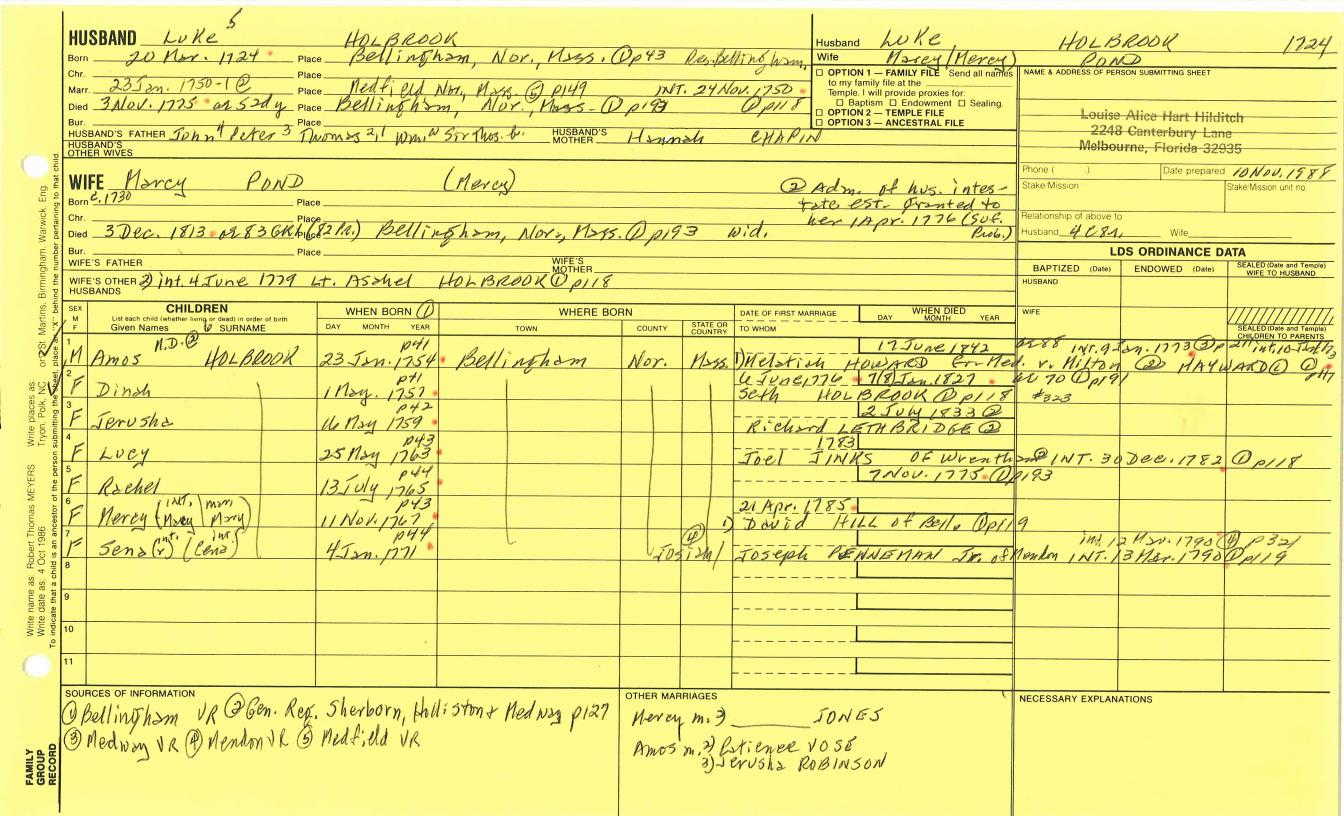 HUSBAND Luke 5 HOLBROOK
Born 20 Mar. 1724 Place Bellingham, Nor., Mass. ① p43 Res. Bellingham,
Chr. Place
Marr. 23 Jan. 1750-1 Place Medfield Nor., Mass. ⑤ p149 INT. 24 Nov. 1750
Died 3 Nov. 1775 Place Bellingham, Nor., Mass. ① p193 ① p118
Bur. Place
HUSBAND'S FATHER John 4 Peter 3 Thomas 2, 1 Wm. HUSBAND'S MOTHER Hannah CHAPIN
HUSBAND'S OTHER WIVES
WIFE Marcy POND (Mercy)
Born c. 1730 Place
Chr. Place
Died 3 Dec. 1813 Place Bellingham, Nor., Mass. ① p193 wid.
Bur. Place
② Adm. of hus. intes-
tate est. granted to
her 1 Apr. 1776 (Suf.
Prob.)
WIFE'S FATHER WIFE'S MOTHER
WIFE'S OTHER HUSBANDS 2) int. 4 June 1779 Lt. Asahel HOLBROOK ① p118
Husband Luke HOLBROOK 1724
Wife Marcy (Mercy) POND
☐ OPTION 1 — FAMILY FILE Send all names
to my family file at the
Temple. I will provide proxies for:
☐ Baptism ☐ Endowment ☐ Sealing.
☐ OPTION 2 — TEMPLE FILE
☐ OPTION 3 — ANCESTRAL FILE
NAME & ADDRESS OF PERSON SUBMITTING SHEET
Louise Alice Hart Hilditch
2248 Canterbury Lane
Melbourne, Florida 32935
Phone ( ) Date prepared 10 Nov. 1988
Stake/Mission Stake/Mission unit no.
Relationship of above to
Husband Wife
LDS ORDINANCE DATA
BAPTIZED (Date) ENDOWED (Date) SEALED (Date and Temple) WIFE TO HUSBAND
HUSBAND
WIFE
SEALED (Date and Temple) CHILDREN TO PARENTS
SEX M F
CHILDREN
List each child (whether living or dead) in order of birth
Given Names SURNAME
WHEN BORN ①
DAY MONTH YEAR
WHERE BORN
TOWN COUNTY STATE OR COUNTRY
DATE OF FIRST MARRIAGE
TO WHOM
WHEN DIED
DAY MONTH YEAR
1 M Amos M.D. ② HOLBROOK 23 Jan. 1754 p41 Bellingham Nor. Mass.
17 June 1842 ae 88 INT. 9 Jan. 1773 ③
1) Melatiah HOWARD Milton ② HAYWARD ①
2 F Dinah 1 May. 1757 p41
6 June 1776 7/8 Jan. 1827 ae 70 ① p191
Seth HOLBROOK ① p118 #323
3 F Jerusha 16 May 1759 p42
2 July 1833 ②
Richard LETHBRIDGE ②
4 F Lucy 25 May 1763 p43
1783
Joel JINKS of Wrentham ② INT. 30 Dec. 1782 ① p118
5 F Rachel 13 July 1765 p44
7 Nov. 1775 ① p193
6 F Mercy (int. Marcy | marr. Mary) 11 Nov. 1767 p43
21 Apr. 1785
1) David HILL of Bell. ① p119
7 F Sena (r) int. (Cena) int. 4 Jan. 1771 p44
int. 12 Mar. 1790 ④ p321
④ Josiah/ Joseph PENNEMAN Jr. of Mendon INT. 13 Mar. 1790 ① p119
8
9
10
11
SOURCES OF INFORMATION
① Bellingham VR ② Gen. Reg. Sherborn, Holliston & Medway p127
③ Medway VR ④ Mendon VR ⑤ Medfield VR
OTHER MARRIAGES
Mercy m. 2) ______ JONES
Amos m. 2) Patience VOSE
3) Jerusha ROBINSON
NECESSARY EXPLANATIONS
Write name as: Robert Thomas MEYERS Write places as: Tryon, Polk, NC or St. Martins, Birmingham, Warwick, Eng.
Write date as: 4 Oct 1986
To indicate that a child is an ancestor of the person submitting the sheet, place an "X" behind the number pertaining to that child
FAMILY
GROUP
RECORD